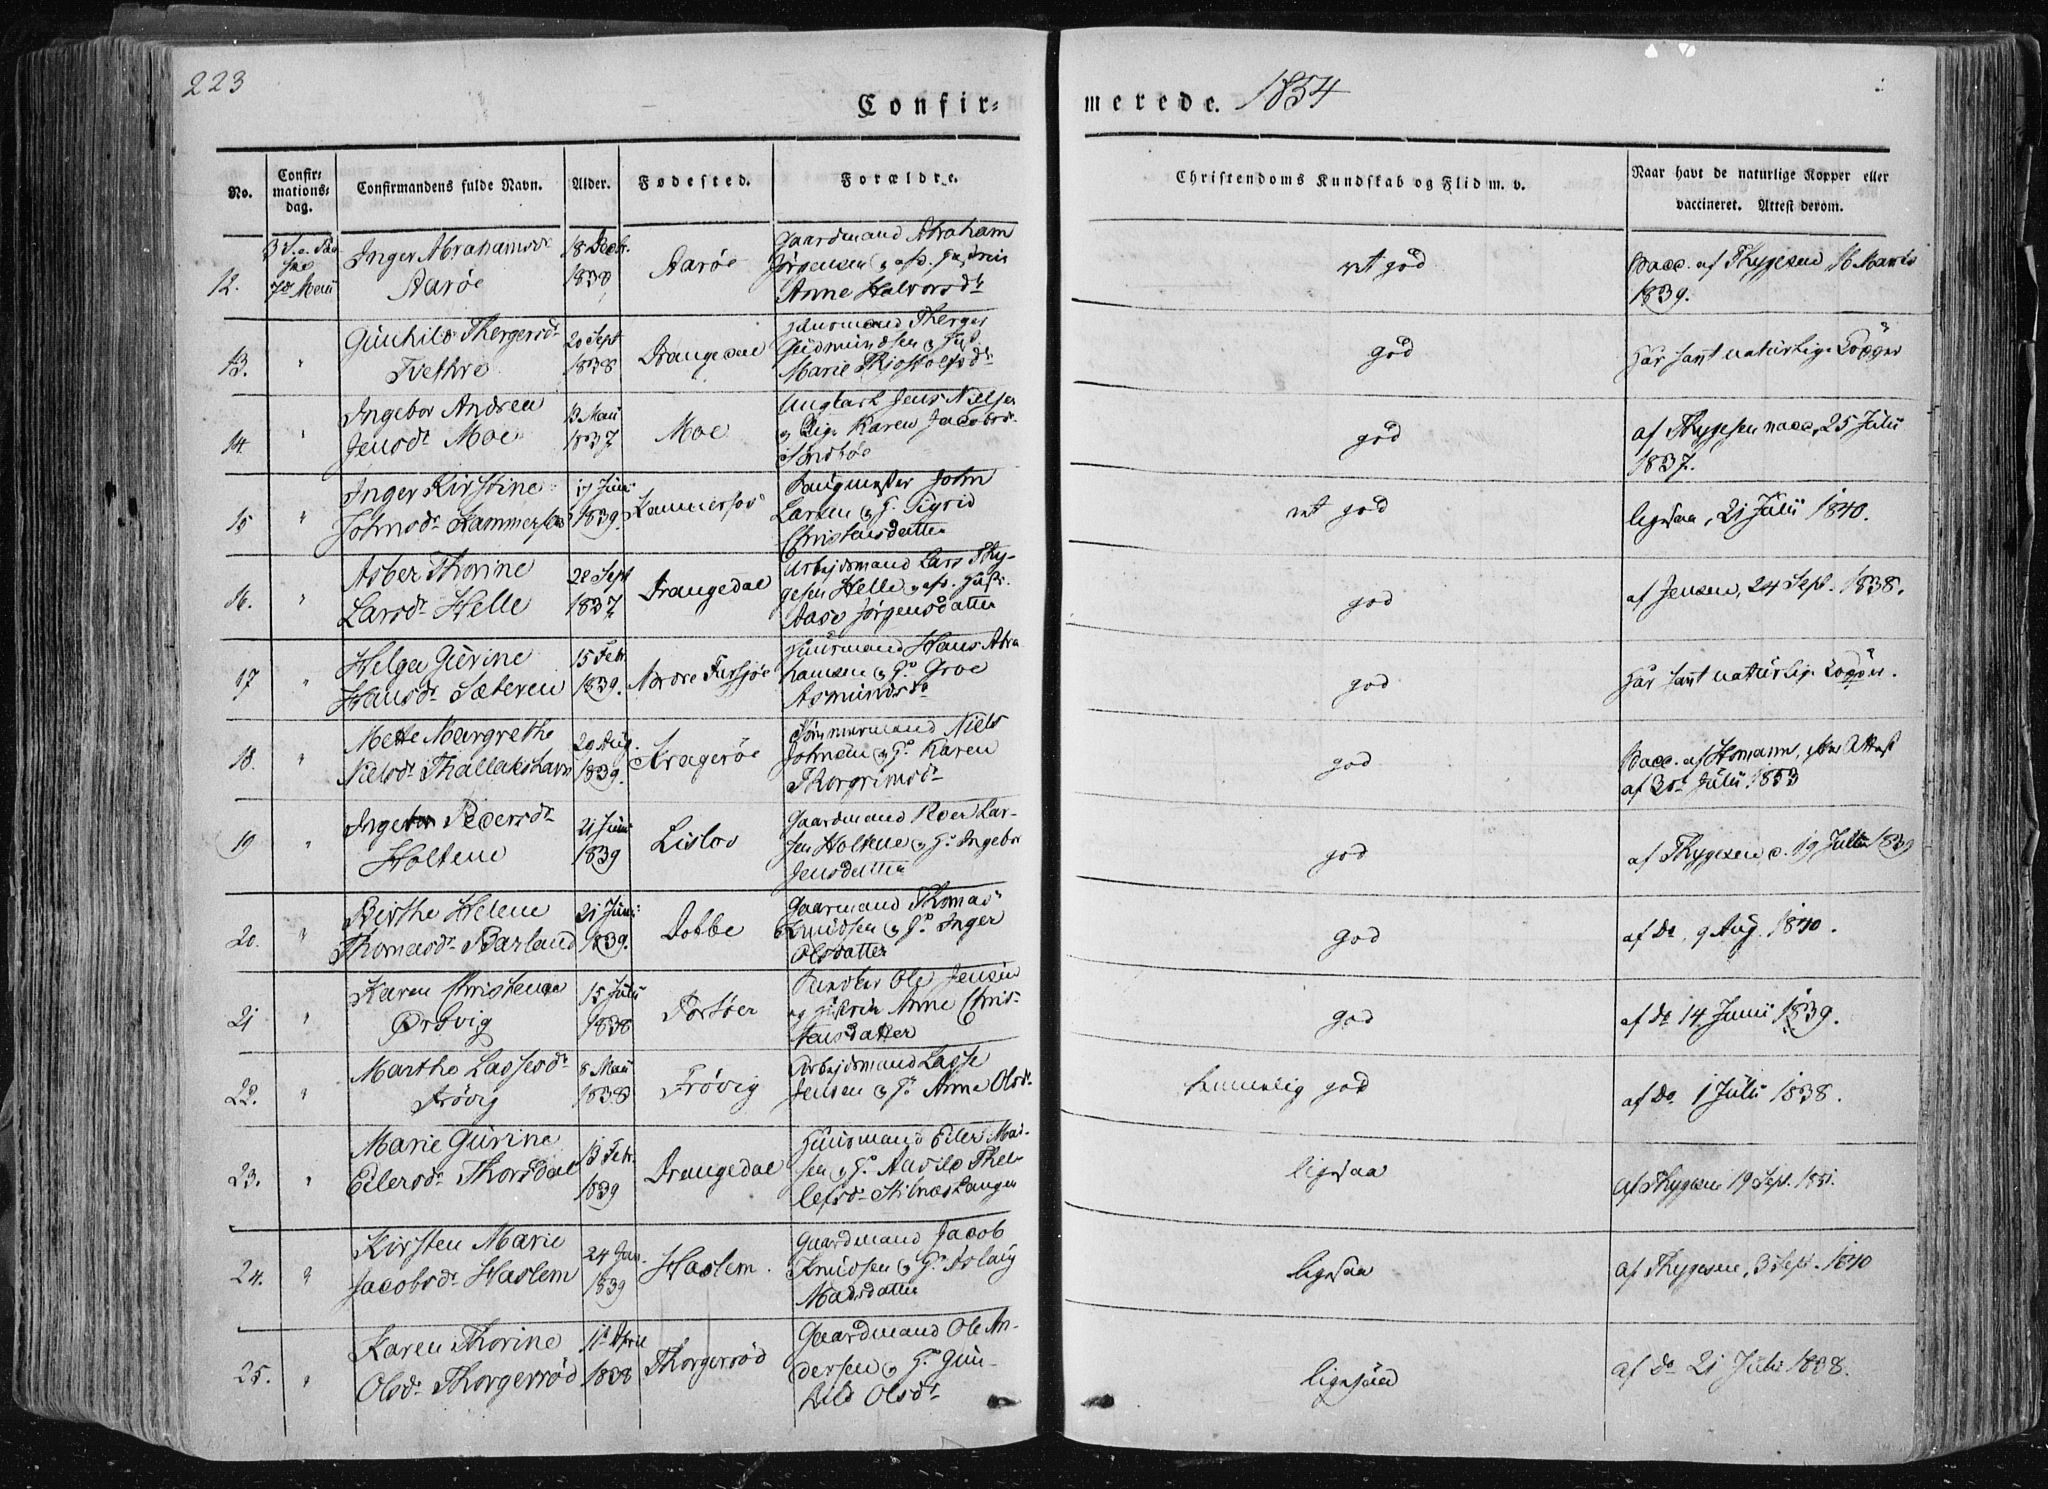 223
Confir-
merede. 1854
No.
Confir-
mations-
dag.
Confirmandens fulde Navn.
Alder.
Fødested.
Forældre.
Christendoms Kundskab og Flid m. v.
Naar havt de naturlige Kopper eller
vaccineret. Attest derom.
12.
7de Maii
Inger Abrahamsdr
Aarøe
18 Decbr.
1838
Aarøe
Gaardmand Abraham
Jørgensen og afd. Hustrue
Anne Halvorsdr
met god
Vacc. af Thygesen 16 Marts
1839.
13.
"
Gunhild Thergersdr
Tvethre
20 Sept
1838
Drangedal
Huusmand Therger
Gudmundsen og Hust.
Marie Thjostolfsdr
god
Har havt naturlige Kopper
14.
"
Ingebor Andrea
Jensdr Moe
13 Maii
1837
Moe
Ungkarl Jens Nielsen
og Pige Karen Jacobsdr
god
af Thygesen vacc. 25 Julii
1837.
15
"
Inger Kirstine
Johnsdr Kammerfos
17 Juni
1839.
Kammerfos
John
Larsen og H. Sigrid
Christensdatter
met god
ligesaa, 21 Julii 1840.
16.
"
Asber Thorine
Larsdr Helle
28 Sept
1837
Drangedal
Arbejdsmand Lars Thy-
gesen Helle og afd. Hustr.
Aase Jørgensdatter
god
af Jensen, 24 Sept. 1838.
17
"
Helga Gurine
Hansdr Sæteren
15 Febr.
1839.
Nordre Farsjøe
Huusmand Hans Abra
hamsen og H. Groe
Asmundsdr
god
Har havt naturlige Kopper.
18.
"
Mette Margrethe
Nielsdr Thallakshavn
20 Aug.
1839.
Kragerøe
Tømmermand Niels
Johnsen og H. Karen
Thorgrimsdr
god
Vacc. af Homann, efter Attest
af 30te Julii 1853
19
"
Ingebor Roersdr
Holtene
21 Juni
1839
Lislov
Gaardmand Roer Lar-
sen Holtene og H. Ingebor
Jensdatter
god
af Thygesen d. 19 Julii 1839
20.
"
Birthe Helene
Thomasdr Barland
21 Juni
1839.
Dobbe
Gaarmand Thomas
Knudsen og H. Inger
Olsdatter
god
af Do, 9 Aug. 1840.
21
"
Karen Christensa
Ørsvig
15 Julii
1838
Portøer
Ole Jensen
og Hustrue Anne Chris-
tensdatter
god
af do 14 Junii 1839.
22.
"
Marthe Lassesdr
Frøvig
8 Maii
1838
Frøvig
Arbejdsmand Lasse
Jensen og H. Anne Olsdr
temmelig god
af Do 1 Julii 1838.
23.
"
Marie Gurine
Eilersdr Thorsdal
13 Febr.
1839
Drangedal
Huusmand Eiler Mad-
sen og H. Aashild Thel-
lefsdr Stilnæstangen
ligesaa
af Thygesen 19 Sept. 1851.
24.
"
Kirsten Marie
Jacobsdr Haslem
24 Jan.
1839
Haslem.
Gaardmand Jacob
Knudsen og H. Aslaug
Madsdatter
ligesaa
af Thygesen, 3 Sept. 1840
25.
"
Karen Thorine
Olsdr Thorgersrød
11te April
1838
Thorgersrød
Gaardmand Ole An-
dersen og H. Gun-
hild Olsdr
ligesaa
af do 21 Julii 1838.